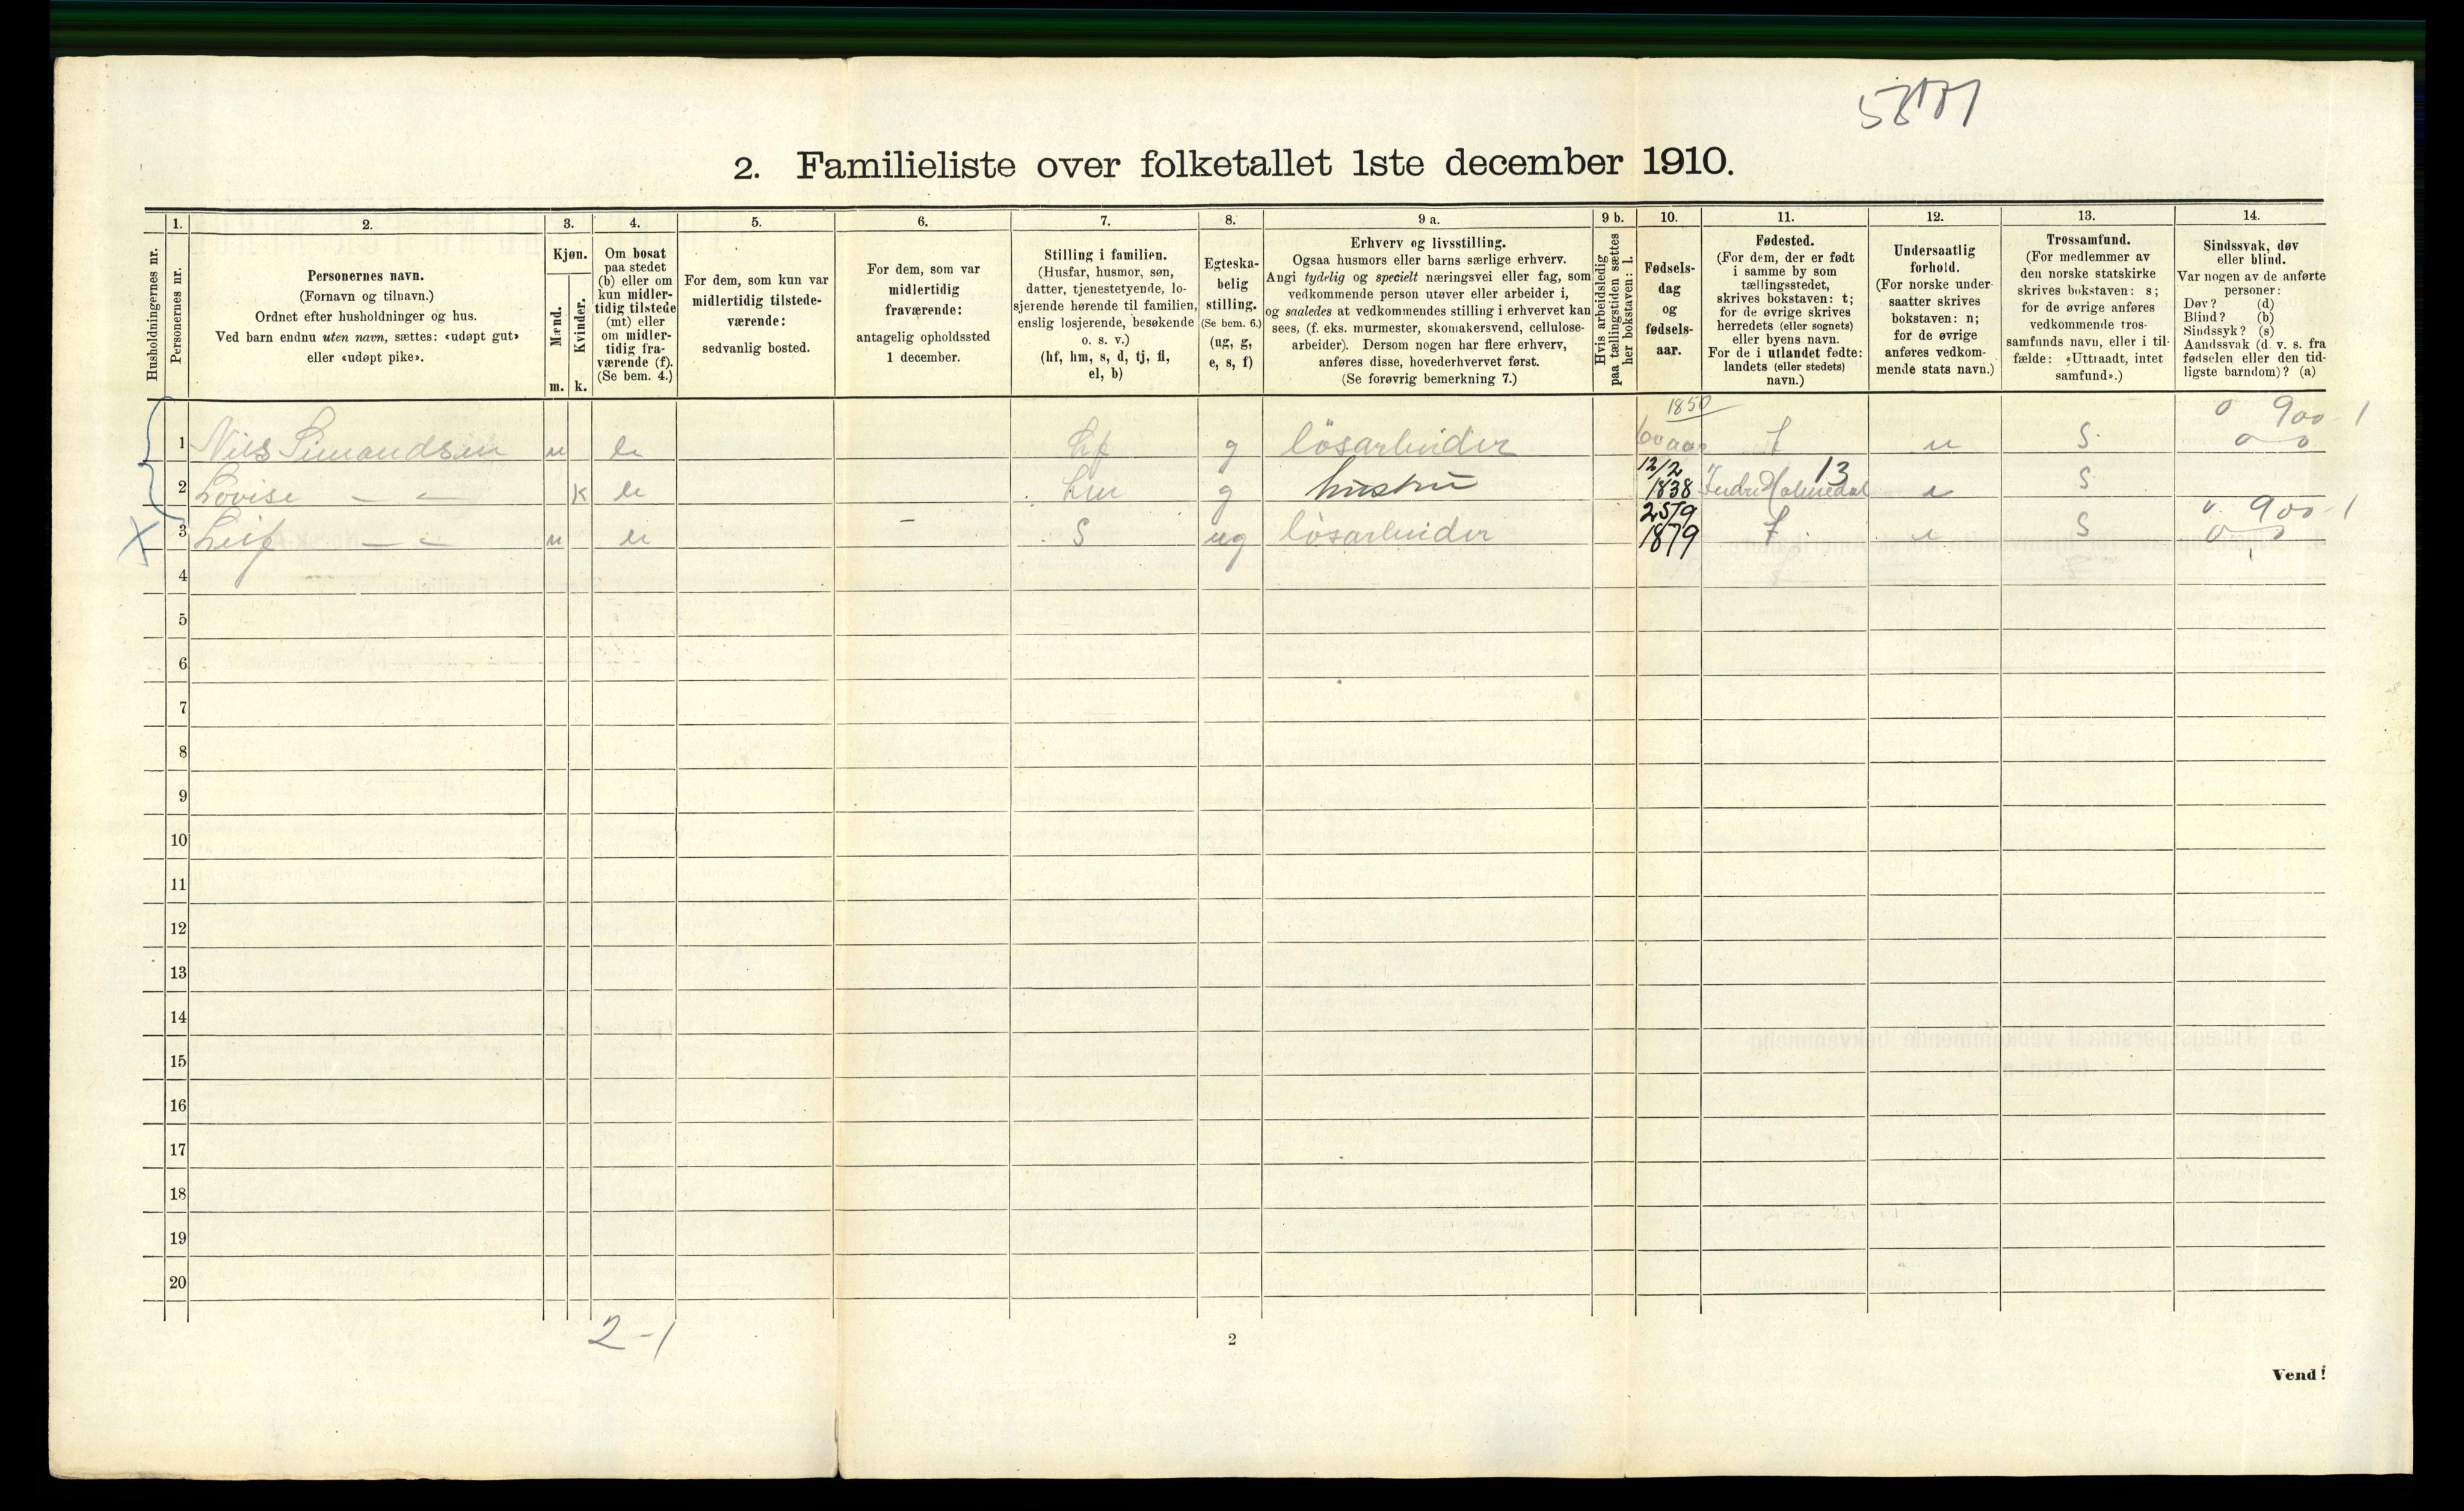 2. Familieliste over folketallet 1ste december 1910.
Husholdningernes nr.
1. Personernes nr.
2. Personernes navn.
(Fornavn og tilnavn.)
Ordnet efter husholdninger og hus.
Ved barn endnu uten navn, sættes: «udøpt gut»
eller «udøpt pike».
3. Kjøn.
Mænd. m.
Kvinder. k.
4. Om bosat
paa stedet
(b) eller om
kun midler-
tidig tilstede
(mt) eller
om midler-
tidig fra-
værende (f).
(Se bem. 4.)
5. For dem, som kun var
midlertidig tilstede-
værende:
sedvanlig bosted.
6. For dem, som var
midlertidig
fraværende:
antagelig opholdssted
1 december.
7. Stilling i familien.
(Husfar, husmor, søn,
datter, tjenestetyende, lo-
sjerende hørende til familien,
enslig losjerende, besøkende
o. s. v.)
(hf, hm, s, d, tj, fl,
el, b)
8. Egteska-
belig
stilling.
(Se bem. 6.)
(ug, g,
e, s, f)
9 a. Erhverv og livsstilling.
Ogsaa husmors eller barns særlige erhverv.
Angi tydelig og specielt næringsvei eller fag, som
vedkommende person utøver eller arbeider i,
og saaledes at vedkommendes stilling i erhvervet kan
sees, (f. eks. murmester, skomakersvend, cellulose-
arbeider). Dersom nogen har flere erhverv,
anføres disse, hovederhvervet først.
(Se forøvrig bemerkning 7.)
9 b. Hvis arbeidsledig
paa tællingstiden sættes
her bokstaven: l.
10. Fødsels-
dag
og
fødsels-
aar.
11. Fødested.
(For dem, der er født
i samme by som
tællingsstedet,
skrives bokstaven: t;
for de øvrige skrives
herredets (eller sognets)
eller byens navn.
For de i utlandet fødte:
landets (eller stedets)
navn.)
12. Undersaatlig
forhold.
(For norske under-
saatter skrives
bokstaven: n;
for de øvrige
anføres vedkom-
mende stats navn.)
13. Trossamfund.
(For medlemmer av
den norske statskirke
skrives bokstaven: s;
for de øvrige anføres
vedkommende tros-
samfunds navn, eller i til-
fælde: «Uttraadt, intet
samfund».)
14. Sindssvak, døv
eller blind.
Var nogen av de anførte
personer:
Døv? (d)
Blind? (b)
Sindssyk? (s)
Aandssvak (d. v. s. fra
fødselen eller den tid-
ligste barndom)? (a)
1850 0 900-1
1 Nils Simondsen m b hf g lösarbeider 60 aar t n S 0 0
12/2 13
2 Lovise — — k b hm g hustru 1838 Indre Holmedal n S
25/9 0 900-1
3 Leif — — m b — S ug lösarbeider 1879 t n S 0 0
4
5
6
7
8
9
10
11
12
13
14
15
16
17
18
19
20
2-1
2
Vend!